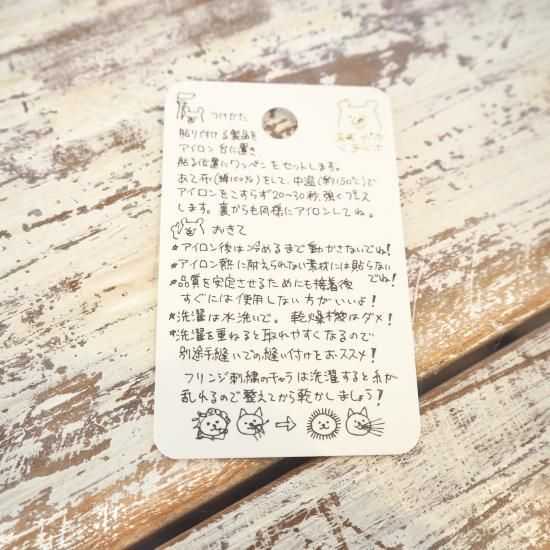 つけかた
貼り付ける製品を
アイロン台に置き、
貼る位置にワッペンをセットします。
あて布(綿100%)をして、中温(約150℃)で
アイロンをこすらず20〜30秒、強くプレス
します。裏からも同様にアイロンしてね。
おきて
★アイロン後は冷めるまで動かさないでね!
★アイロン熱に耐えられない素材には貼らない
でね!
★品質を安定させるためにも接着後
すぐには使用しない方がいいよ!
★洗濯は水洗いで。乾燥機はダメ!
★洗濯を重ねると取れやすくなるので
別途手縫いでの縫い付けをおススメ!
フリンジ刺繍のキャラは洗濯すると糸が
乱れるので整えてから乾かしましょう!
→